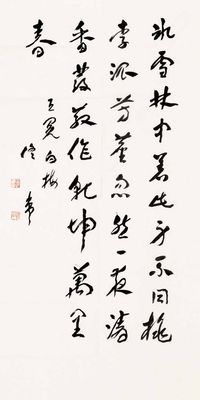 冰雪林中著此身不同桃
李混芳尘忽然一夜清
香发散作乾坤万里
春
王冕白梅